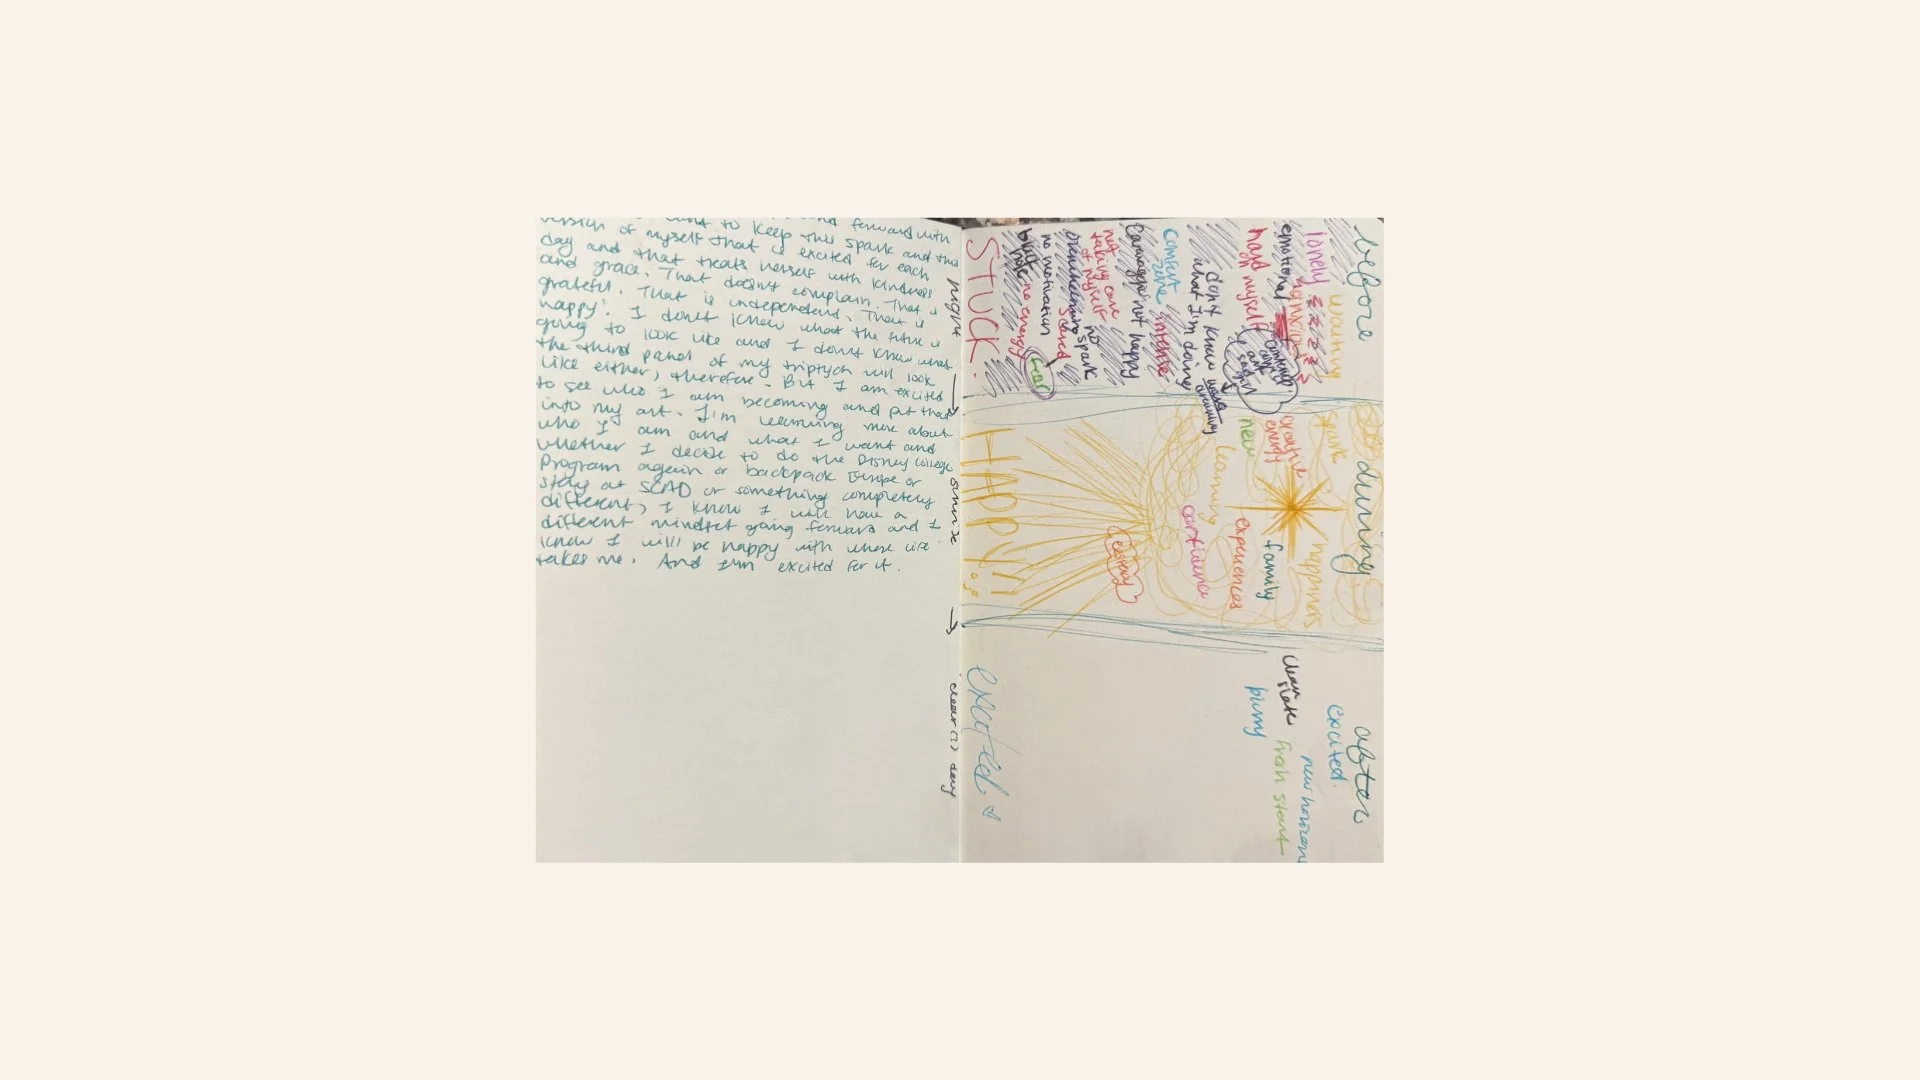 to keep this spark and forward with
version of myself that is excited for each
day and that treats herself with kindness
and grace. That doesn't complain. That is
grateful. That is independent. That is
happy! I don't know what the future is
going to look like and I don't know what
the third panel of my triptych will look
like either, therefore. But I am excited
to see who I am becoming and put that
into my art. I'm learning more about
who I am and what I want and
whether I decide to do the Disney College
Program again or backpack Europe or
stay at SCAD or something completely
different, I know I will have a
different mindset going forward and I
know I will be happy with where life
takes me. And I'm excited for it.
night → sunrise → clear(?) day
before
waiting
lonely
anxious
emotional
hard on myself
don't know
what I'm doing
comfort
zone
intense
Caravaggio
not happy
not
taking care
of myself
no
spark
overwhelming
scared
no motivation
fear
black
hole
no energy
STUCK.
during
spark
happiness
creative
energy
family
new
experiences
learning
confidence
ecstasy
HAPPY!!
after
excited.
new horizons
clean
slate
fresh start
blurry
excited.